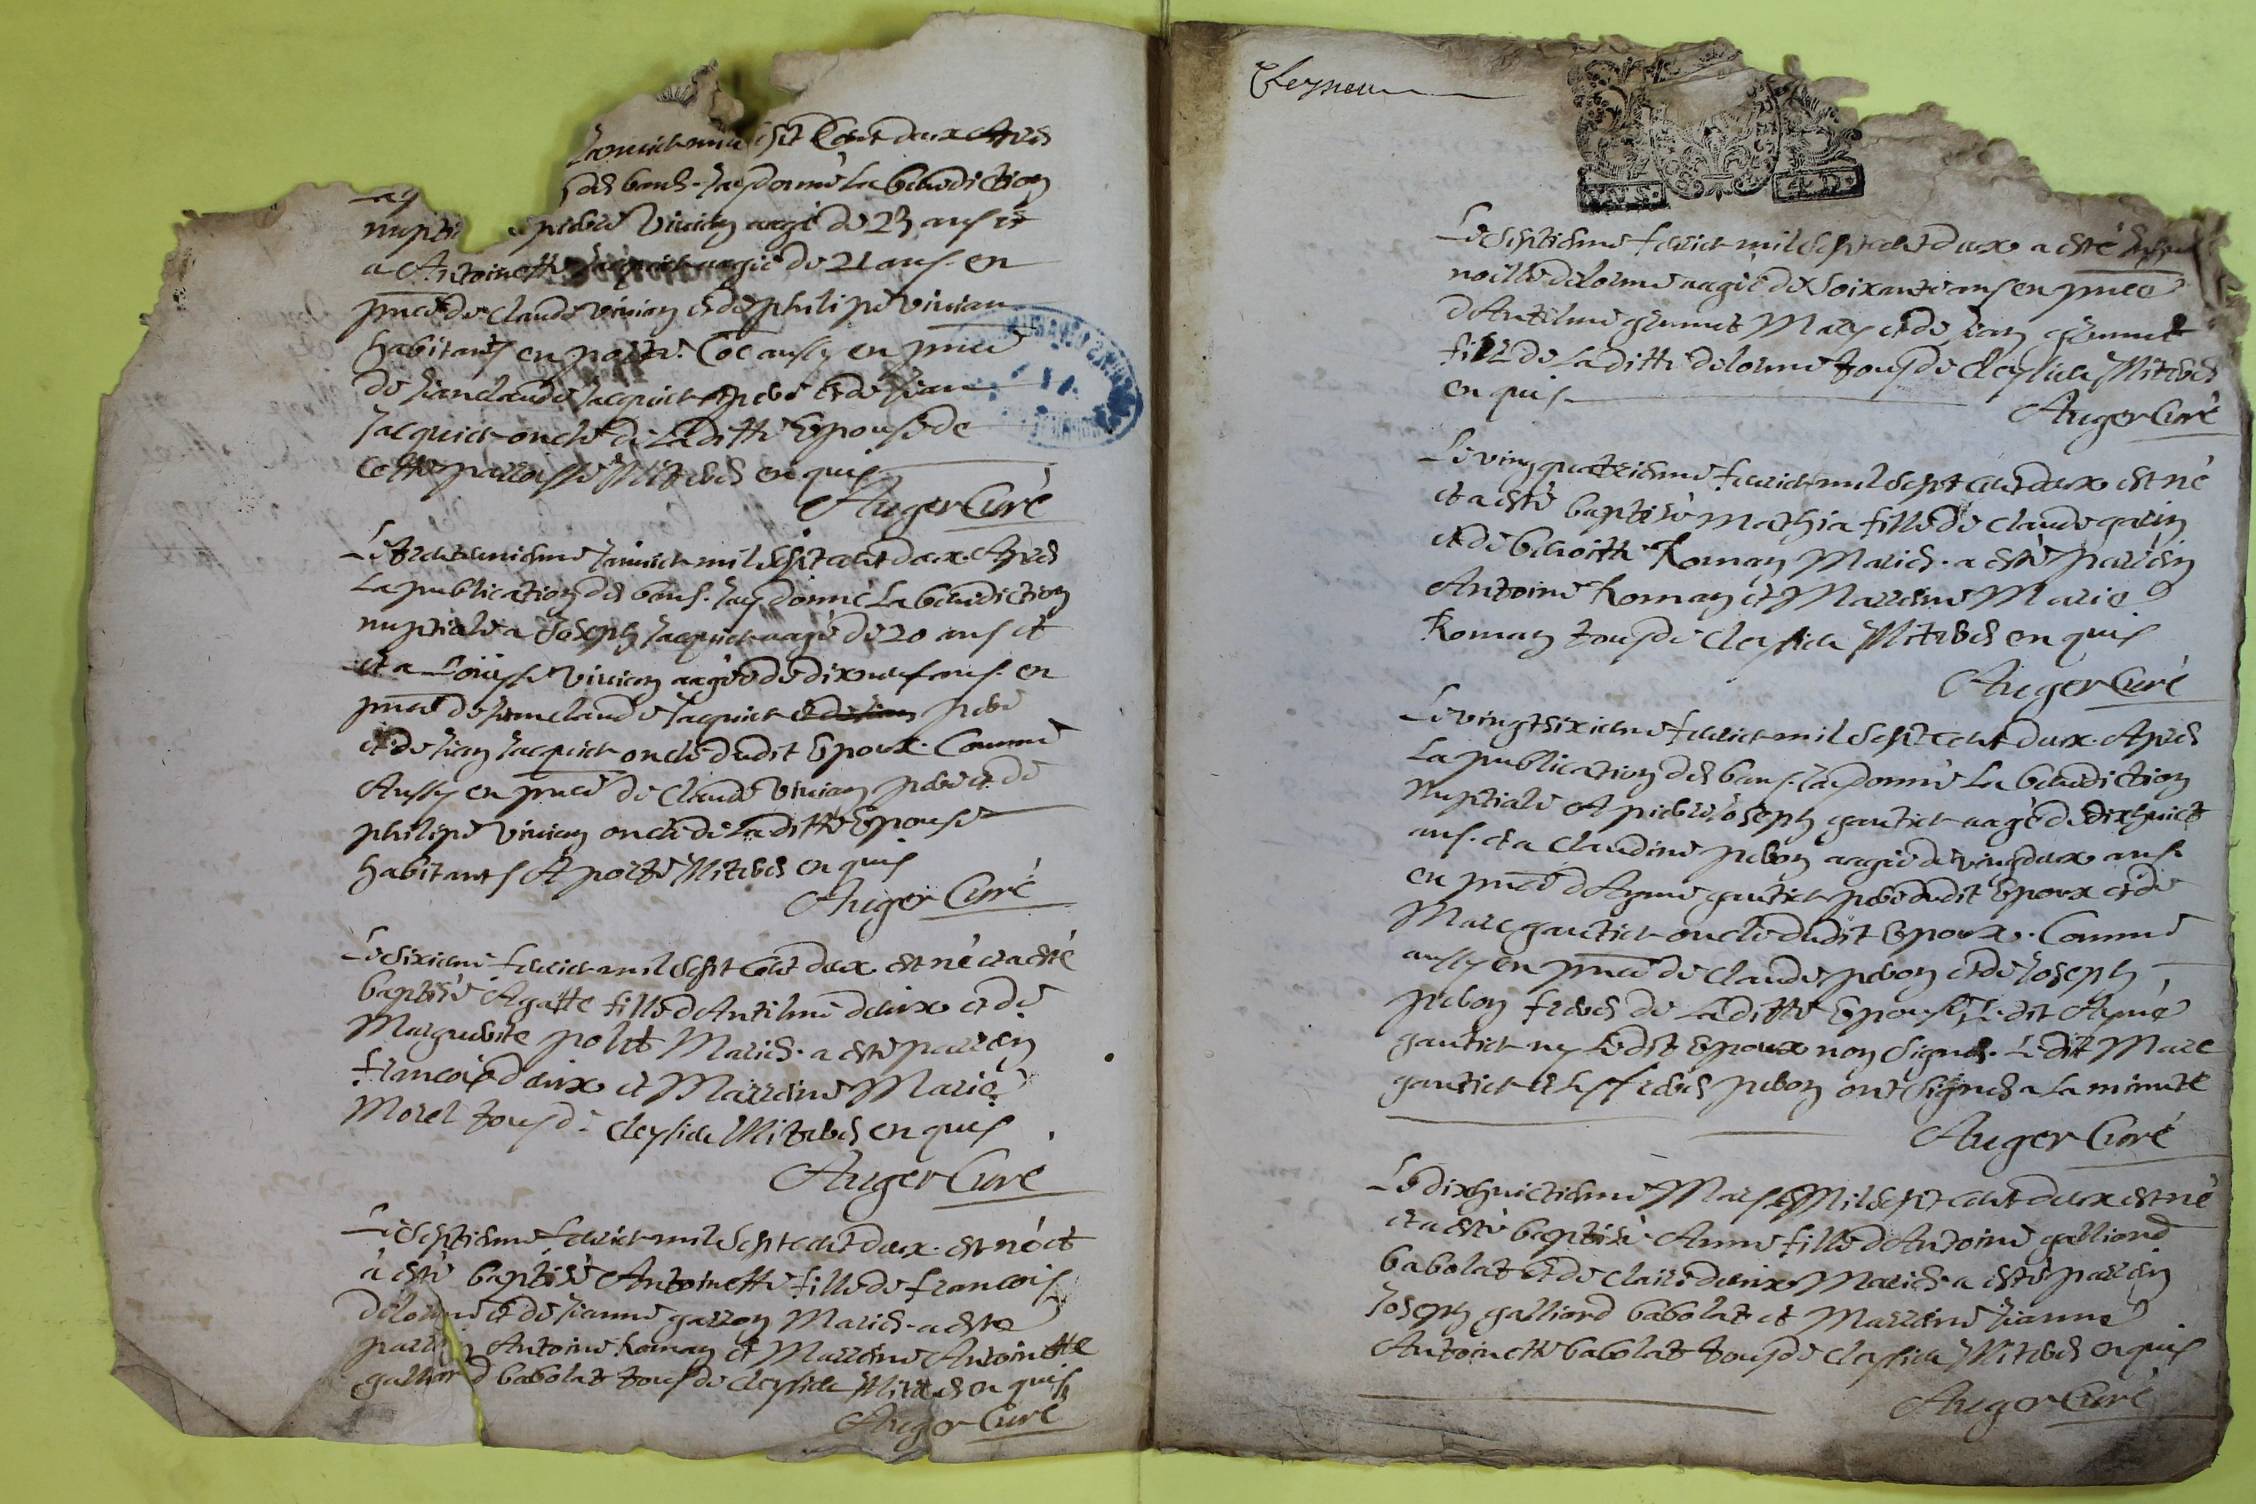 Janvier mil sept Cent deux Apres
des bans. Jay donné La benediction
nupti pierre Vivian aagé de 23 ans et
a Antoinette Jacquier aagée de 21 ans. en
pnce de Claude vivian et de philipe vivian
habitants en porte. Coe aussy en pnce
de Jean claude Jacquier pere et de Jean
Jacquier oncle de La ditte Epouse de
Cette parroisse Illiteres enquis
Auger Curé
Le trente unieme Janvier mil sept cent deux. Apres
La publication des bans. Jay donné La benediction
nuptiale a Joseph Jacquier aagé de 20 ans et
et a Loüyse vivian aagée de dixneuf ans. en
pnce de Jean claude Jacquier et de Jean pere
et de Jean Jacquier oncle dudit Epoux. Comme
Aussy en pnce de Claude vivian pere et de
philipe vivian oncle de Laditte Epouse
habitants A porte Illiteres enquis
Auger Curé
Le sixieme fevrier mil sept Cent deux est né et a esté
baptisé Agatte fille d'Antilme et de
Marguerite polet Mariés. a esté parrein
francois et Marreine Marie
Morel tous de Cleyzieu Illiteres enquis
Auger Curé
Le septieme fevrier mil sept cent deux. est né et
a esté baptisé Antoinette fille de francois
delorme et de Jeanne garron Mariés. a esté
Antoine Roman et Marreine Antoinette
babolat tous de Cleyzieu Illiteres enquis
Auger Curé
Le septieme fevrier mil sept cent deux a esté
delorme aagée de soixante ans en pnce
d'Antilme Mary et de Jean
fils de La ditte delorme tous de Cleyzieu Illiteres
enquis
Auger Curé
Le vingquatrieme fevrier mil sept cent deux est né
et a esté baptisé Mathia fille de Claude garin
et de benoitte Roman Mariés. a esté parrein
Antoine Roman et Marreine Marie
Roman tous de Cleyzieu Illiteres enquis
Auger Curé
Le vingtsixieme fevrier mil sept cent deux. Apres
La publication des bans. Jay donné La benediction
Nuptiale A pierre Joseph gautier aagé de dixhuict
ans. et a Claudine pebon aagée de vingdeux ans.
en pnce d'Aymé gautier pere dudit Epoux et de
Marc gautier oncle dudit Epoux. Comme
aussy en pnce de Claude pebon et de Joseph
pebon freres de Laditte Epouse Ledit Aymé
gautier ny Ledit Epoux non signés. Ledit Marc
gautier et les freres pebon ont signés a La minute
Auger Curé
Le dixhuictieme Mars Mil sept cent deux est né
et a esté baptisé Anne fille d'Antoine galliord
babolat et de Claire Mariés. a esté parrein
Joseph galliord babolat et Marreine Jeanne
Antoinette babolat tous de Cleyzieu Illiteres enquis
Auger Curé